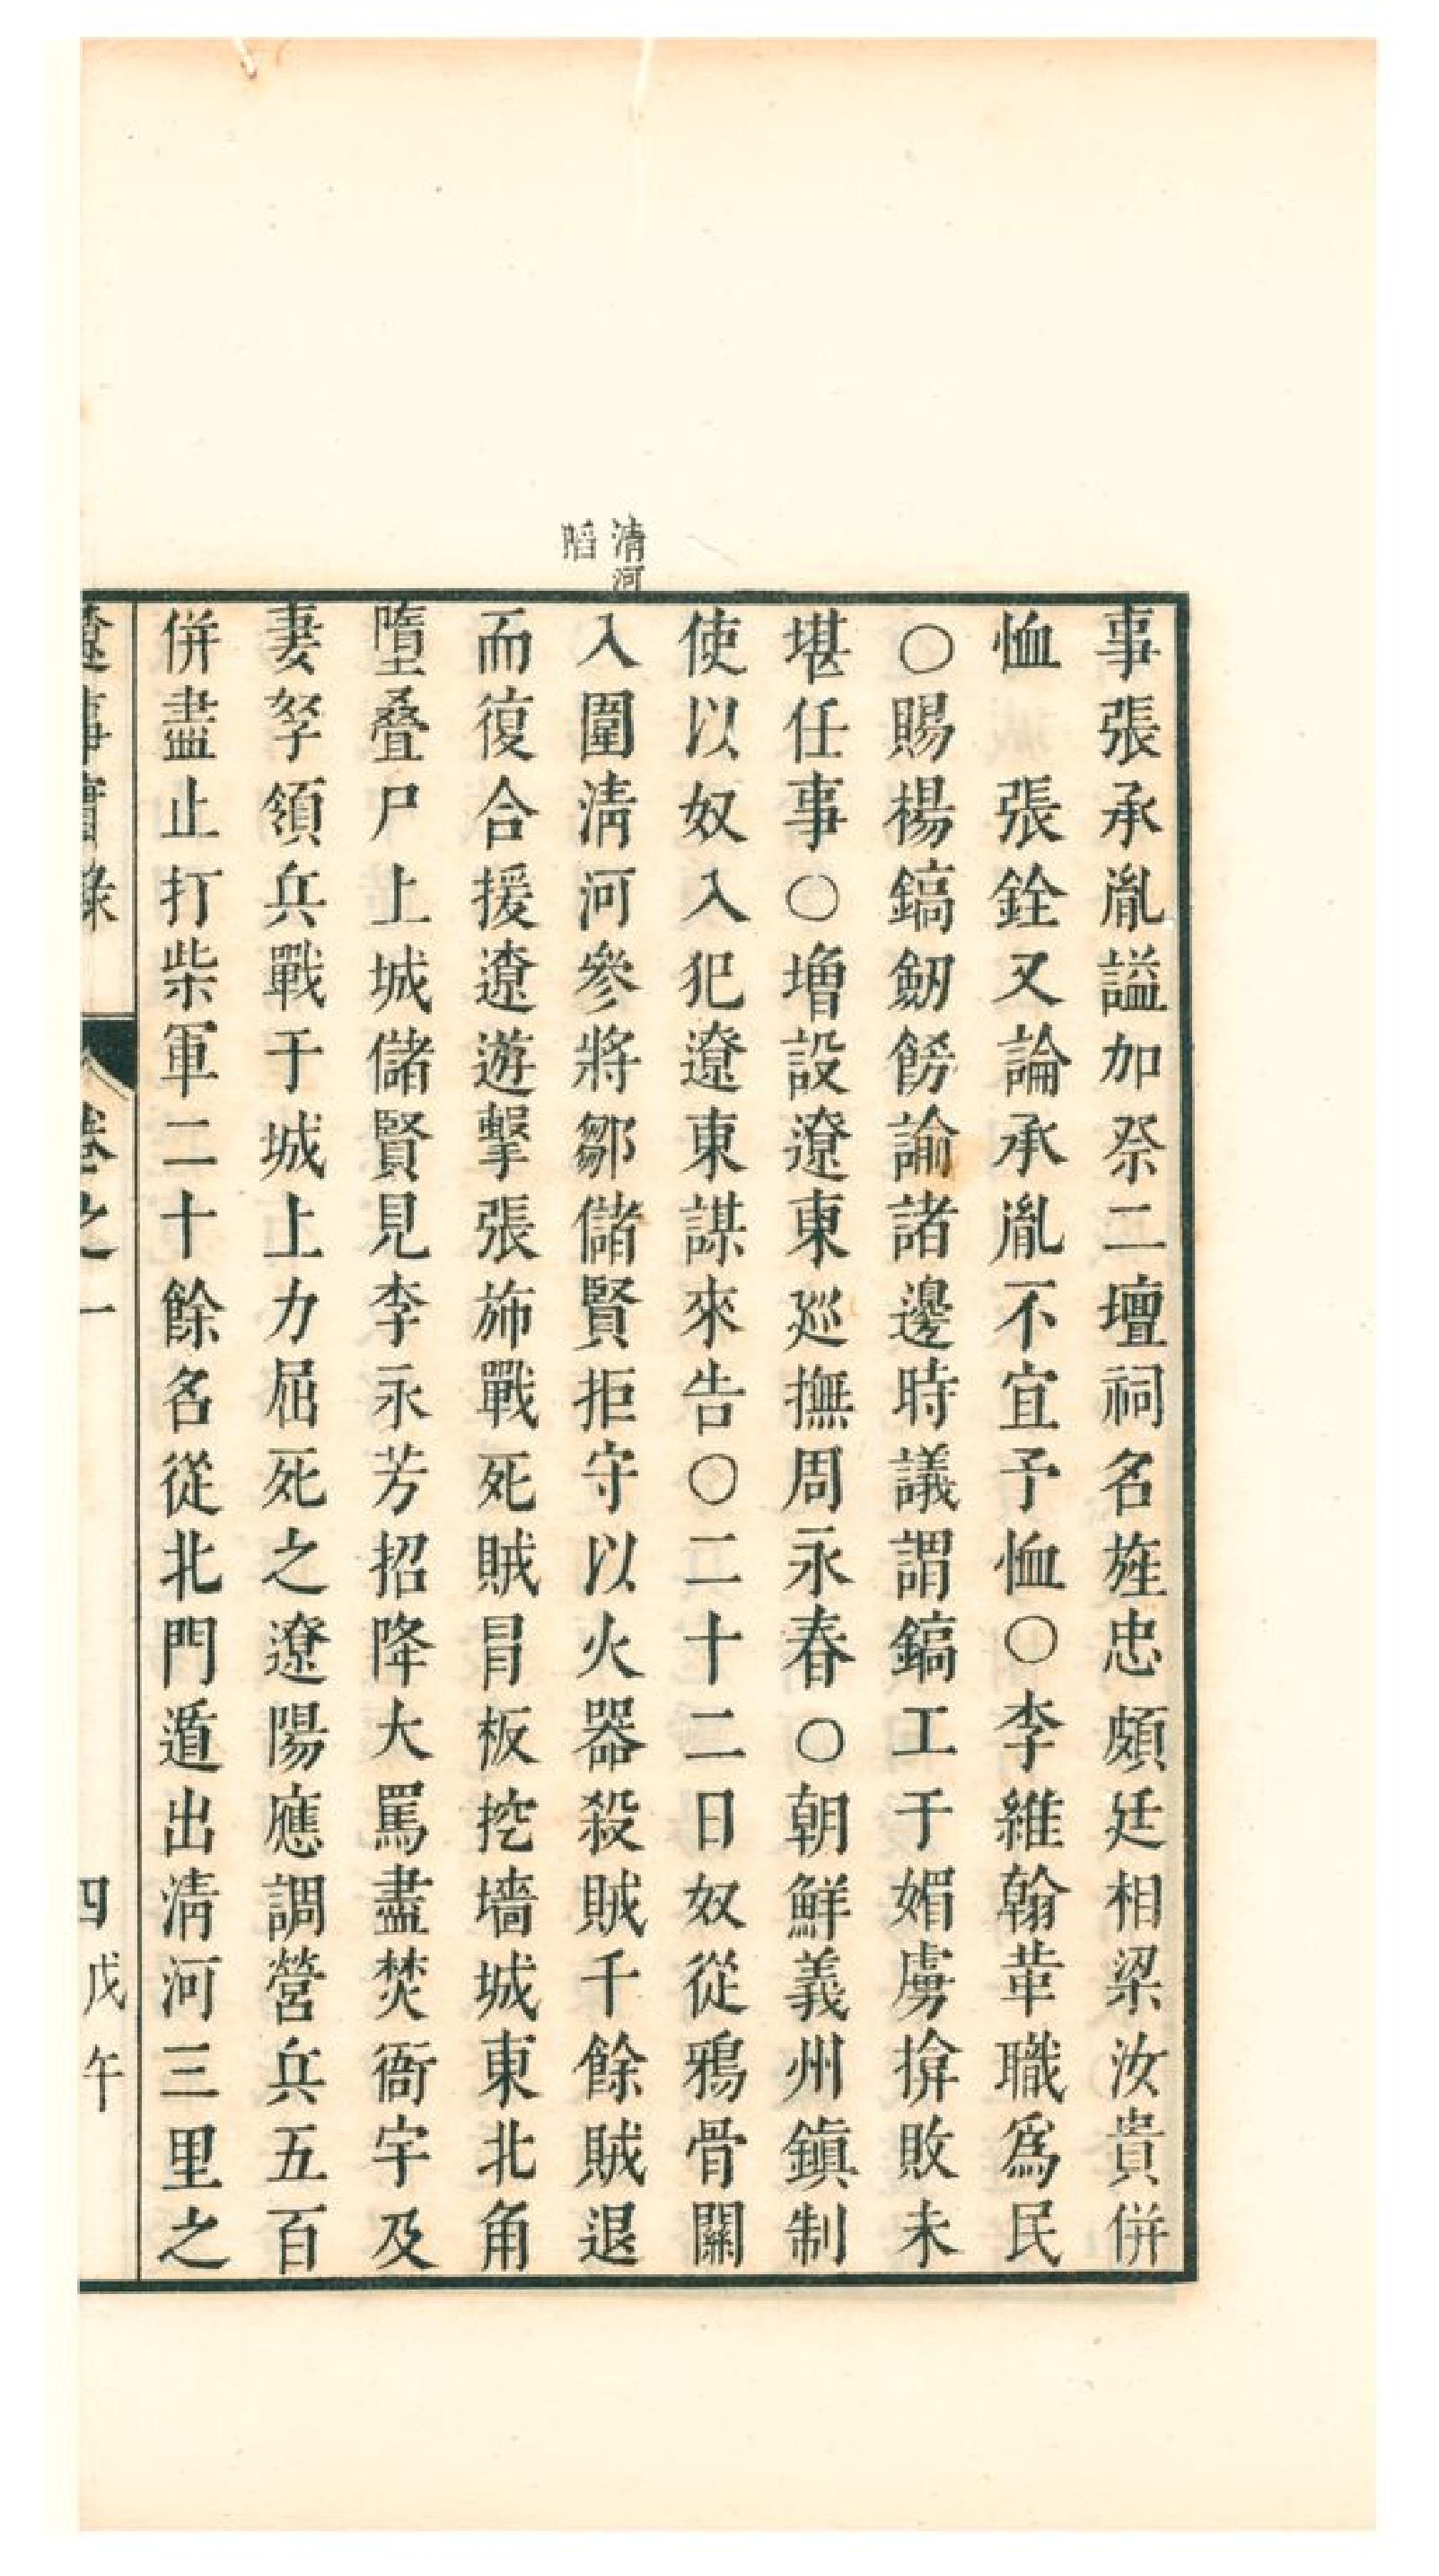 清河
陷
事張承胤謚加祭二壇祠名旌忠頗廷相梁汝貴併
恤　張銓又論承胤不宜予恤○李維翰革職爲民
○賜楊鎬劒餝諭諸邊時議謂鎬工于媚虜揜敗未
堪任事○增設遼東巡撫周永春○朝鮮義州鎭制
使以奴入犯遼東謀來告○二十二日奴從鴉骨關
入圍淸河參將鄒儲賢拒守以火器殺賊千餘賊退
而復合援遼遊擊張斾戰死賊冐板挖墻城東北角
墮叠尸上城儲賢見李永芳招降大罵盡焚衙宇及
妻孥領兵戰于城上力屈死之遼陽應調營兵五百
併盡止打柴軍二十餘名從北門遁出淸河三里之
遼事實錄　卷之一　四　戊午